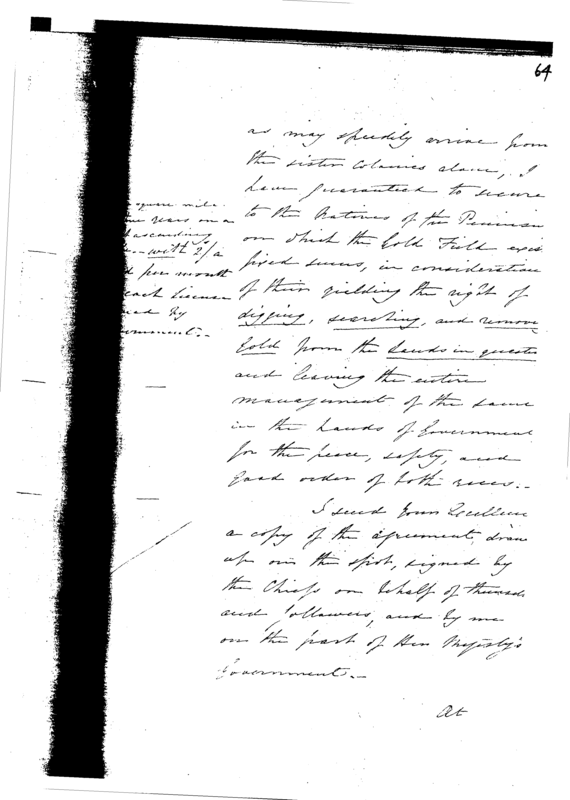 64
as may speedily arrive from
the sister Colonies alone, I
have guaranteed to secure
to the Natives of the Peninsu
on which the Gold Field exis
fixed sums, in consideration
of their yielding the right of
digging, searching, and remove
Gold from the Lands in questio
and leaving the entire
management of the same
in the hands of Government
for the peace, safety, and
good order of both races. –
I send Your Excellenc
a copy of the agreement, drawn
up on the spot, signed by
the Chiefs on behalf of themselv
and followers, and by me
on the part of Her Majesty's
Government. –
At
square mile
years on a
ascending
with 2/ a
per month
each License
by
ernment. –